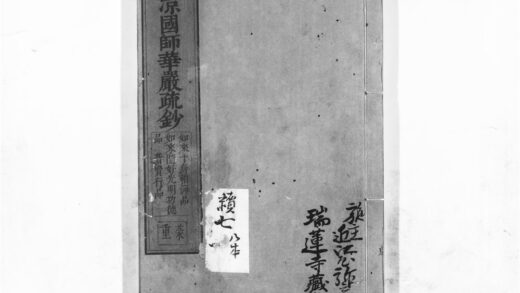 涼國師華嚴疏鈔
如來十身相海品
如來隨好光明功德
品 普賢行品
重
續七
八本
瑞蓮寺藏